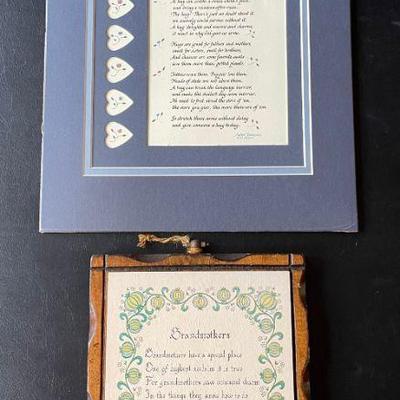 and brings a rainbow after rain.
The hug! There's just no doubt about it
we scarcely could survive without it.
A hug delights and warms and charms,
it must be why God gave us arms.
Hugs are great for fathers and mothers,
swell for sisters, swell for brothers,
And chances are some favorite aunts
love them more than potted plants.
Kittens crave them. Puppies love them.
Heads of state are not above them.
A hug can break the language barrier,
and make the dullest day seem merrier.
No need to fret about the store of 'em,
the more you give, the more there are of 'em.
So stretch those arms without delay
and give someone a hug today.
Grandmothers
Grandmothers have a special place
One of highest esteem it is true
For grandmothers
In the things they